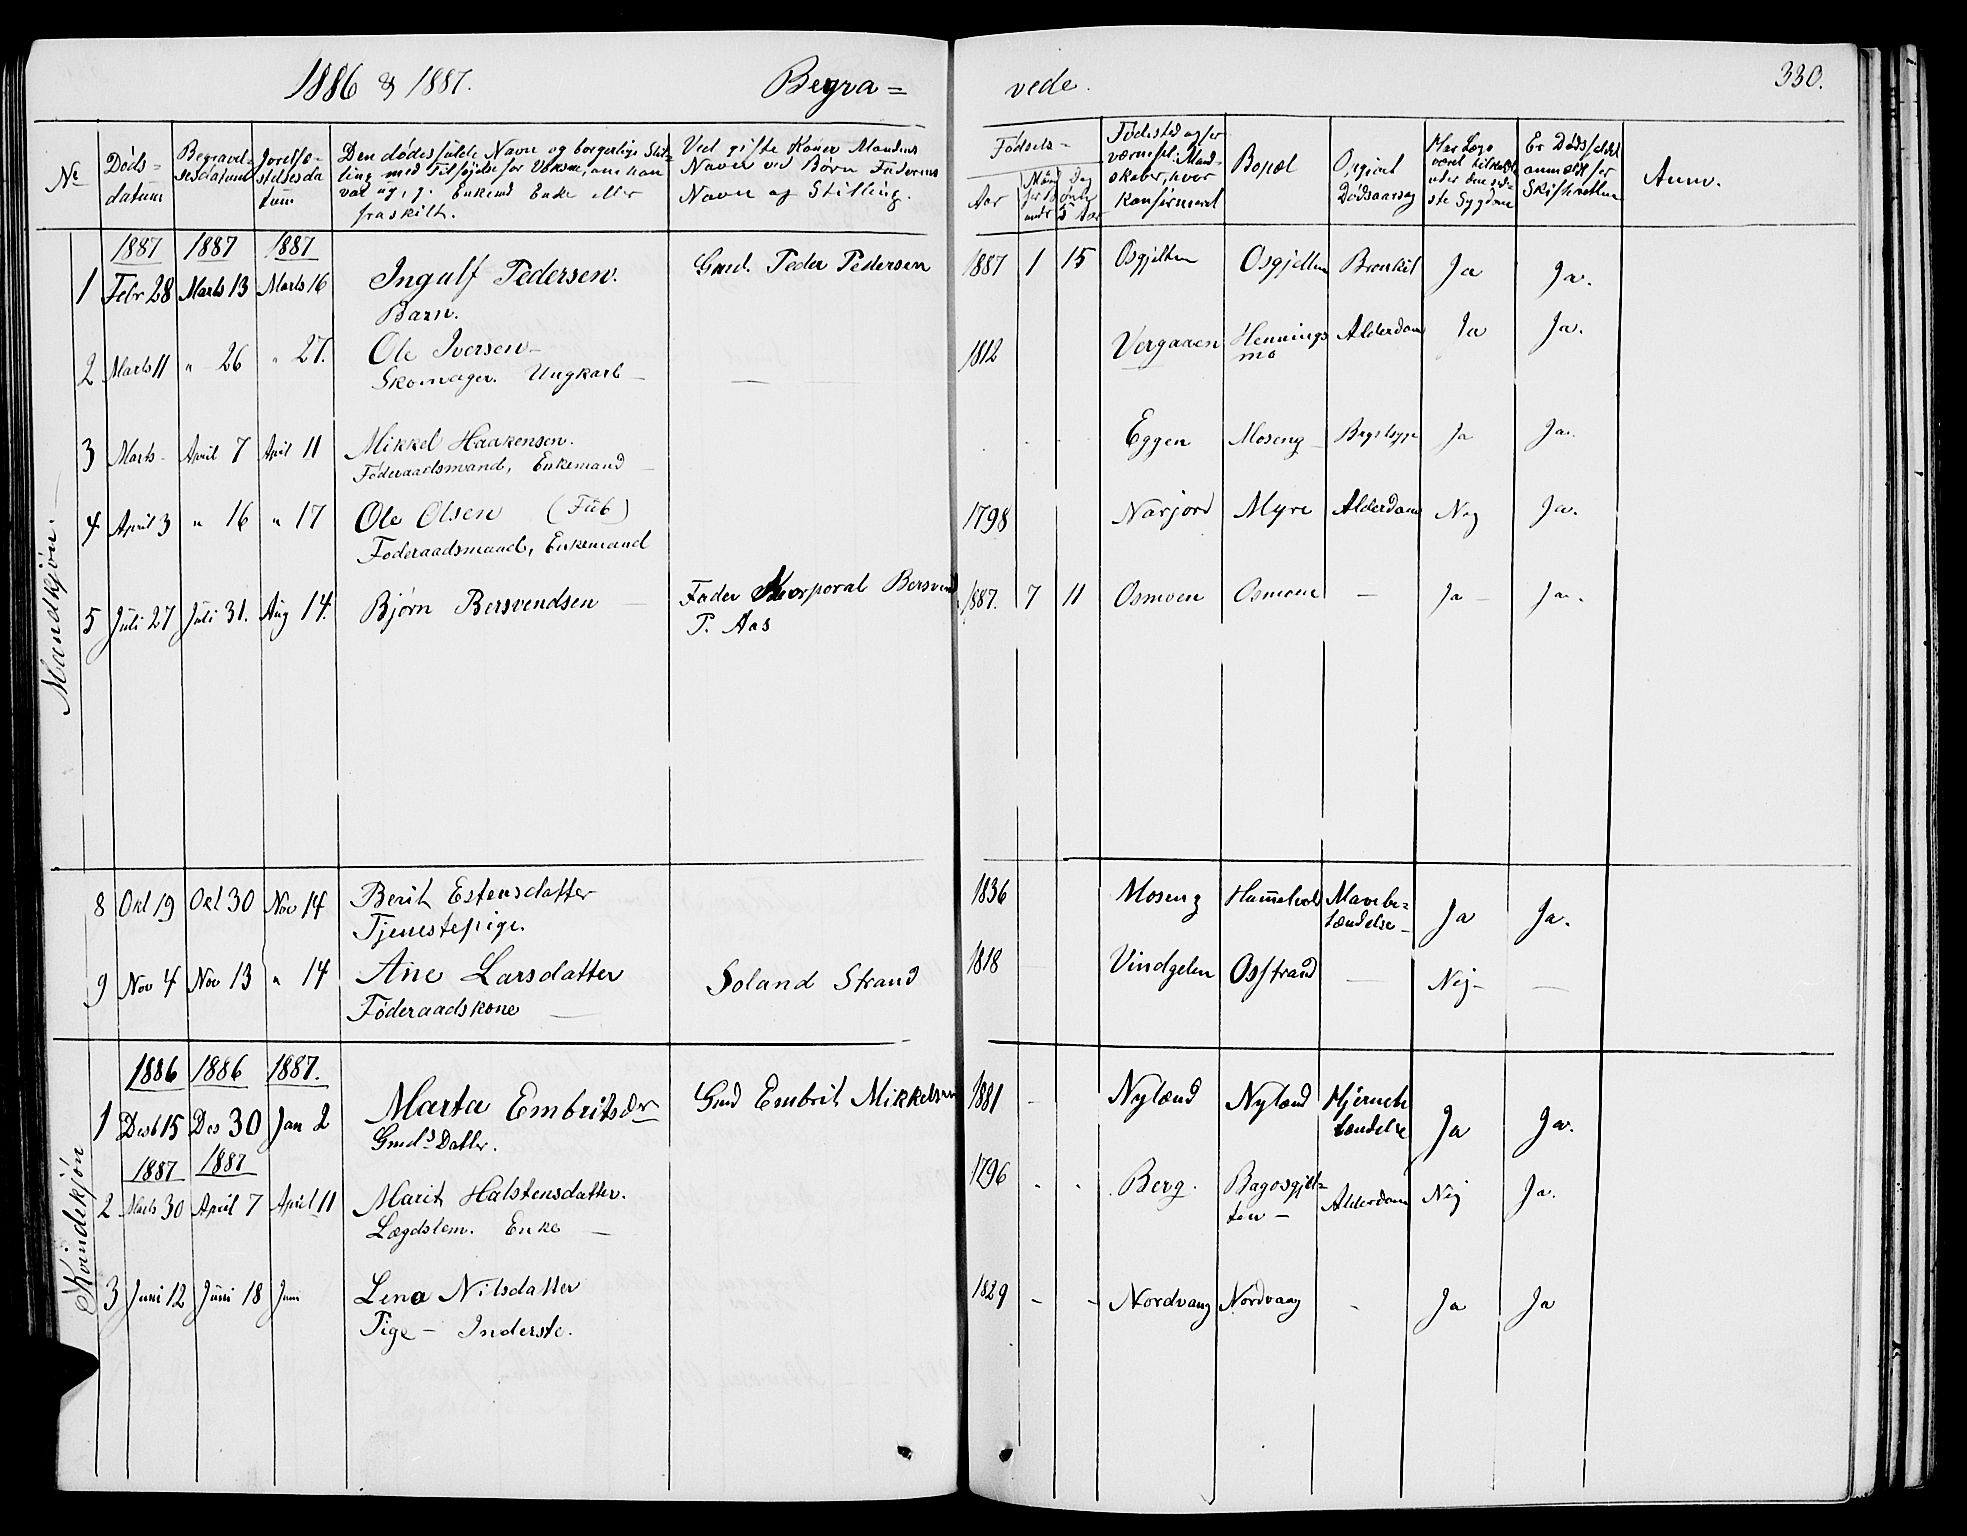 1886 & 1887. Begra= vede. 330.
No Døds= datum Begravel= sesdatum Jordfæ= stelsesda tum Den dødes fulde Navn og borgerlige Stil= ling med Tilføjelse for Voksne, om han var ug, g. Enkemd Enke eller fraskilt. Ved gifte Koner Mandens Navn ved Børn Faderens Navn og Stilling. Fødsels= Aar Fødested og for værnepl. Mand= skaber, hvor konfirmeret Bopæl Opgivet Dødsaarsag Har Læge været tilkaldt under den sid= ste Sygdom Er Dødsfaldet anmeldt for Skifteretten Anm.
Mandkjøn.
1887 1887 1887
1 Febr 28 Marts 13 Marts 16 Ingulf Pedersen. Gmd. Peder Pedersen 1887 1 15 Osgjelten Osgjelten Bronkit Ja Ja.
Barn.
2 Marts 11 " 26 " 27. Ole Iversen 1812 Vergaaen Hennings mo Alderdom Ja Ja.
Skomager. Ungkarl
3 Marts - April 7 April 11 Mikkel Haakensen. Eggen Moseng Ja Ja.
Føderaadsmand, Enkemand
4 April 3 " 16 " 17 Ole Olsen (Fub) 1798 Narjord Myre Alderdom Nej Ja.
Føderaadsmand, Enkemand
5 Juli 27 Juli 31. Aug 14. Bjørn Bersvendsen Fader Korporal Bersvend 1887. 7 11 Osmoen Osmoen — Ja Ja.
P. Aas
8 Okt 19 Okt 30 Nov 14 Berit Estensdatter 1836 Moseng Hammelvol Mavebe= tændelse Ja Ja.
Tjenestepige.
9 Nov 4 Nov 13 " 14 Ane Larsdatter Soland Strand 1818 Vindgelen Osstrand — Nej —
Føderaadskone
Kvindekjøn
1886 1886 1887.
1 Desb 15 Des 30 Jan 2 Marta Embritsdr Gmd Embrit Mikkelsen 1881 - Nylænd Nylænd Hjernebe tændelse Ja Ja.
Gmds Datter.
1887 1887
2 Marts 30 April 7 April 11 Marit Halstensdatter. 1796 Berg. Bagosgjel= ten Alderdom Nej Ja.
Lægdslem. Enke
3 Juni 12 Juni 18 Juni Lena Nilsdatter 1829 - - Nordvang Nordvang - Ja Ja
Pige - Inderste.